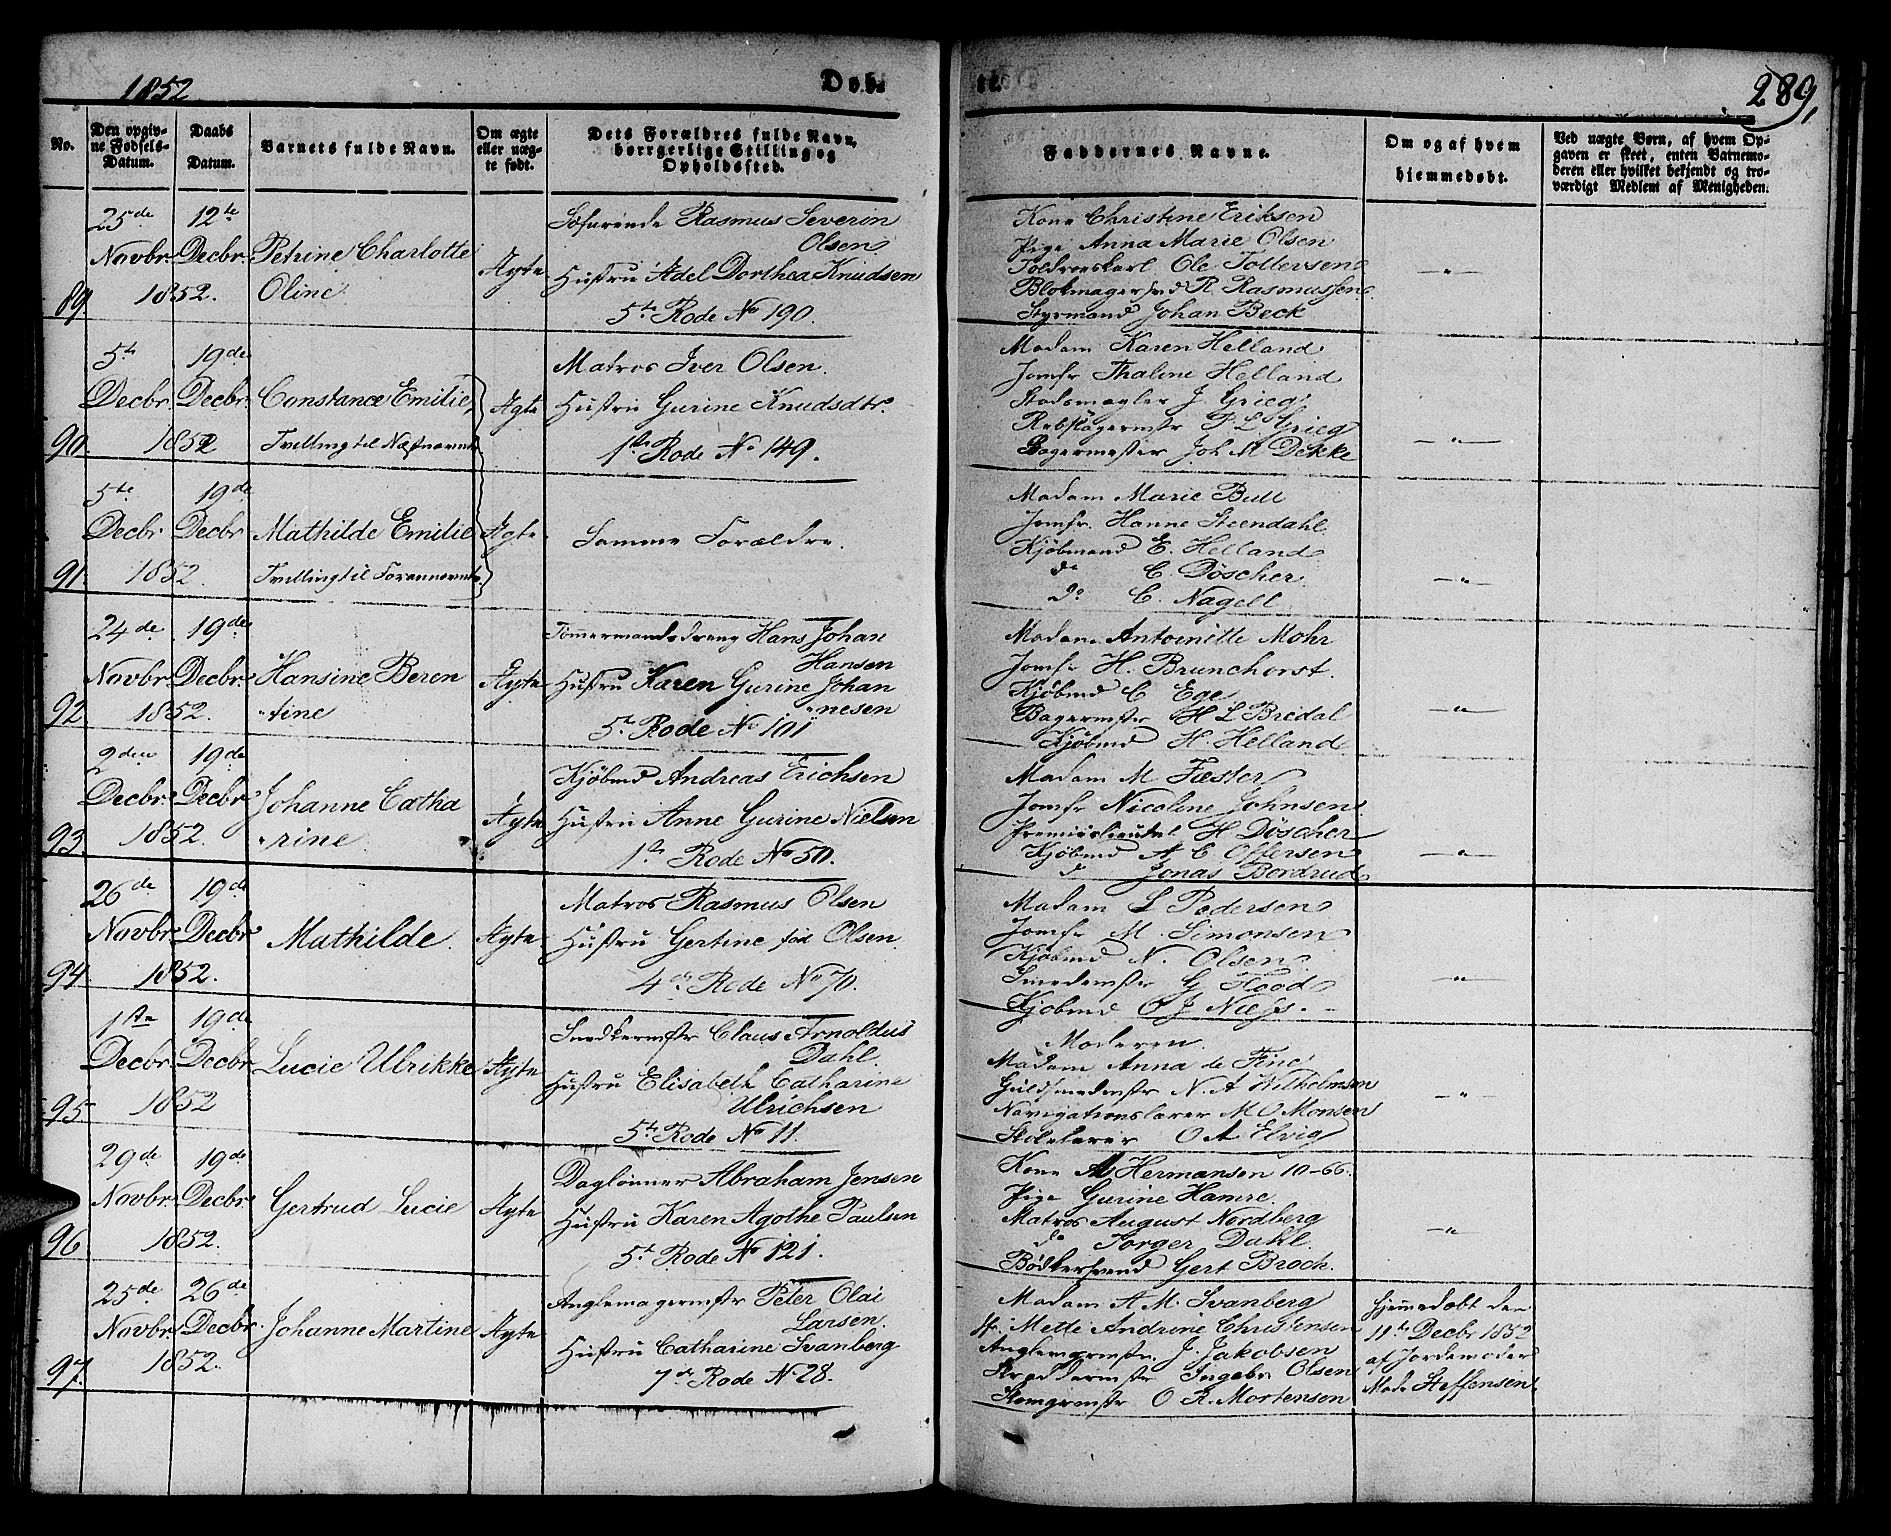 1852
Døb-
te.
289,
No.
Den opgiv-
ne Fødsels-
Datum.
Daabs
Datum.
Barnets fulde Navn.
Om ægte
eller næg-
te født.
Dets Forældres fulde Navn,
borgerlige Stilling og
Opholdssted.
Faddernes Navne.
Om og af hvem
hjemmedøbt.
Ved uægte Børn, af hvem Op-
gaven er skeet, enten Barnemo-
deren eller hvilket bekjendt og tro-
værdigt Medlem af Menigheden.
89.
25de
Novbr
12te
Decbr.
1852.
Petrine Charlotte
Oline
Ægte
Søfarende Rasmus Severin
Olsen
Hustru Adel Dorthea Knudsen
5te Rode No 190.
Kone Christine Eriksen
Pige Anna Marie Olsen
Ole Tollevsen
Blokmagersvd R. Rasmussen
Styrmand Johan Beck
— " —
90.
5te
Decbr.
19de
Decbr.
1852
Constance Emilie,
Tvilling til Næstnævnte
Ægte
Matros Iver Olsen.
Hustru Gurine Knudsdtr.
1ste Rode No 149.
Madam Karen Helland
Jomfr Thaline Helland
Stadsmægler J. Grieg
Rebslagermstr P L Grieg
Bagermester Joh M Dekke
— " —
91.
5te
Decbr
19de
Decbr
1852.
Mathilde Emilie
Tvilling til Forannævnte.
Ægte
Samme Forældre.
Madam Marie Bull
Jomfr. Hanne Steendahl
Kjøbmand E. Helland
do C. Döscher
do C. Nagell
— " —
92.
24de
Novbr
19de
Decbr.
1852.
Hansine Beren
"tine
Ægte
Tømmermandsdreng Hans Johan
Hansen
Hustru Karen Gurine Johan
"nesen
5te Rode No 101
Madam Antoinette Mohr
Jomfr H. Brunchorst.
Kjøbmd C Ege
Bagermstr H L Bredal
Kjøbmd H. Helland
— " —
93.
2den
Decbr.
19de
Decbr.
1852.
Johanne Catha
"rine
Ægte
Kjøbmd Andreas Erichsen
Hustru Anne Gurine Nielsen
1ste Rode No 50.
Madam M Fæster
Jomfr Nicoline Johnsen
Premierlieutnt H Döscher
Kjøbmd A C Offersen
do Jonas Bordrud
— " —
94.
26de
Novbr.
19de
Decbr.
1852.
Mathilde.
Ægte.
Matros Rasmus Olsen
Hustru Gertine fød Olsen
4de Rode No 70.
Madam L Pedersen
Jomfr M. Simonsen
Kjøbmd N. Olsen.
Smedemstr G Flood
Kjøbmd O J Niess.
— " —
95.
1ste
Decbr.
19de
Decbr
1852
Lucie Ulrikke
Ægte
Snedkermstr Claus Arnoldus
Dahl
Hustru Elisabeth Catharine
Ulrichsen
5te Rode No 11.
Moderen.
Madam Anna de Fine
Guldsmedemstr N. A Wilhelmsen
Navigationslærer M O Monsen
Skolelærer O A Elvig
— " —
96.
29de
Novbr.
19de
Decbr.
1852.
Gertrud Lucie
Ægte
Daglønner Abraham Jensen
Hustru Karen Agothe Paulsen
5te Rode No 121.
Kone A Hermansen 10-66.
Pige Gurine Hamre.
Matros August Nordberg
do Torger Dahl.
Bødkersvend Gert Broch.
— " —
97.
25de
Novbr
26de
Decbr.
1852.
Johanne Martine
Ægte
Anglemagermstr Peter Olai
Larsen.
Hustru Catharine Svanberg
7de Rode No 28.
Madam A M. Svanberg
Mette Andrine Christensen
J. Jakobsen
Skræddermstr Ingebr Olsen
O R. Mortenson
Hjemmedøbt den
11te Decbr 1852
af Jordemoder
Mad. Steffensen